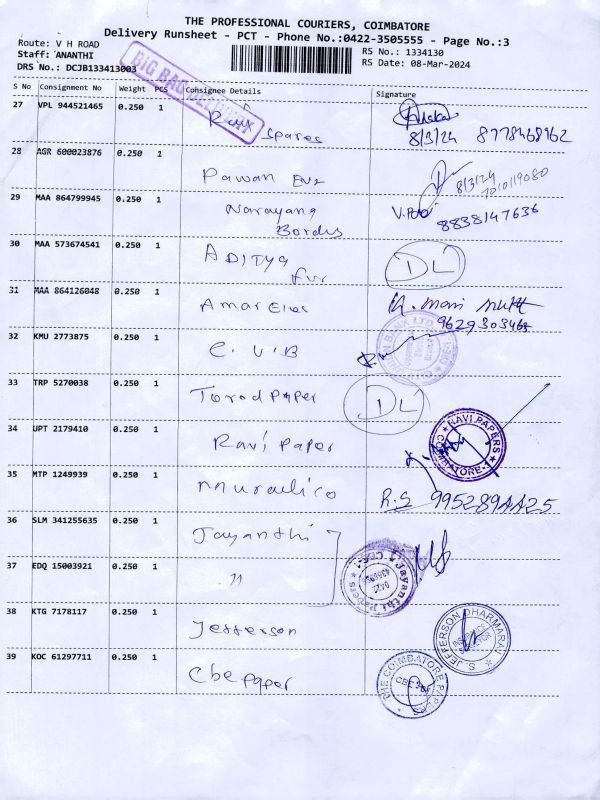 THE PROFESSIONAL COURIERS, COIMBATORE
Delivery Runsheet - PCT - Phone No.:0422-3505555 - Page No.:3
Route: V H ROAD
Staff: ANANTHI
DRS No.: DCJB133413003
RS No.: 1334130
RS Date: 08-Mar-2024
BIG BAG
S No Consignment No Weight PCS Consignee Details Signature
27 VPL 944521465 0.250 1 Ravi Spares 8/3/24 8778468162
28 AGR 600023876 0.250 1 Pawan Ent 8/3/24 7010119080
29 MAA 864799945 0.250 1 Narayang Bordes 8838147636
30 MAA 573674541 0.250 1 ADITYA Fur DL
31 MAA 864126048 0.250 1 Amar Elec 9629303468
32 KMU 2773875 0.250 1 C.U.B
33 TRP 5270038 0.250 1 Torod Paper DL
34 UPT 2179410 0.250 1 Ravi Paper RAVI PAPERS COIMBATORE-1
35 MTP 1249939 0.250 1 Muralico R.S 9952894425
36 SLM 341255635 0.250 1 Jayanthi
37 EDQ 15003921 0.250 1 " Jayanthi Papers CBE-1 0422
38 KTG 7178117 0.250 1 Jefferson S. JEFFERSON DHARMARAJ
39 KOC 61297711 0.250 1 Cbe Paper THE COIMBATORE PAPERS